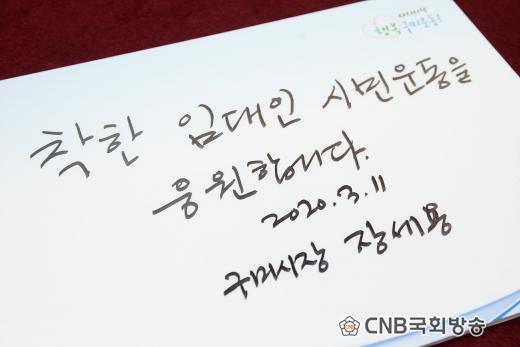 행복
착한 임대인 시민운동을
응원합니다.
2020.3.11
구미시장 장세용
CNB국회방송